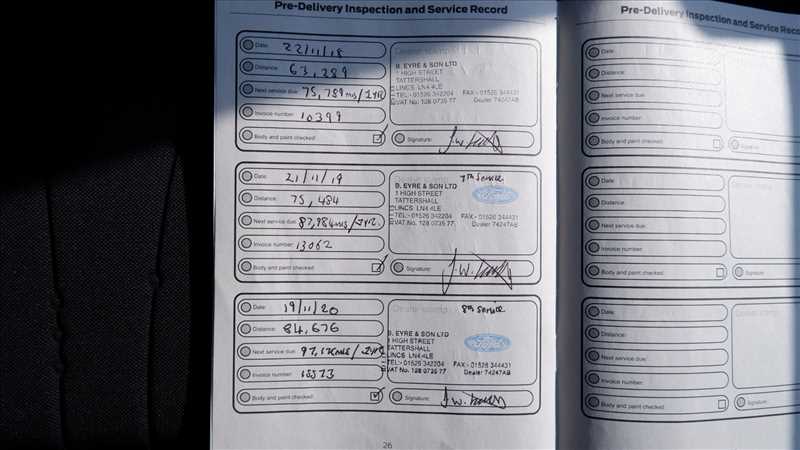 Pre-Delivery Inspection and Service Record
Date: 22/11/18
Distance: 63,289
Next service due: 75,789mls/1YR.
Invoice number: 10399
Body and paint checked
Dealer stamp:
B. EYRE & SON LTD
1 HIGH STREET
TATTERSHALL
LINCS LN4 4LE
TEL:- 01526 342204 FAX:- 01526 344431
VAT No. 128 0735 77 Dealer 74247AB
Signature:
Date: 21/11/19
Distance: 75,484
Next service due: 87,984mls/1YR.
Invoice number: 13062
Body and paint checked
7th Service
B. EYRE & SON LTD
1 HIGH STREET
TATTERSHALL
LINCS LN4 4LE
TEL:- 01526 342204 FAX:- 01526 344431
VAT No. 128 0735 77 Dealer 74247AB
Ford
Signature:
Date: 19/11/20
Distance: 84,676
Next service due: 97,176mls/1YR.
Invoice number:
Body and paint checked
Dealer stamp: 8th Service
B. EYRE & SON LTD
1 HIGH STREET
TATTERSHALL
LINCS LN4 4LE
TEL:- 01526 342204 FAX:- 01526 344431
VAT No. 128 0735 77 Dealer 74247AB
Ford
Signature:
26
Pre-Delivery Inspection and Service
Date:
Distance:
Next service due:
Invoice number:
Body and paint checked
Signature:
Date:
Distance:
Next service due:
Invoice number:
Body and paint checked
Dealer stamp:
Signature:
Date:
Distance:
Next service due:
Invoice number:
Body and paint checked
Dealer stamp:
Signature: